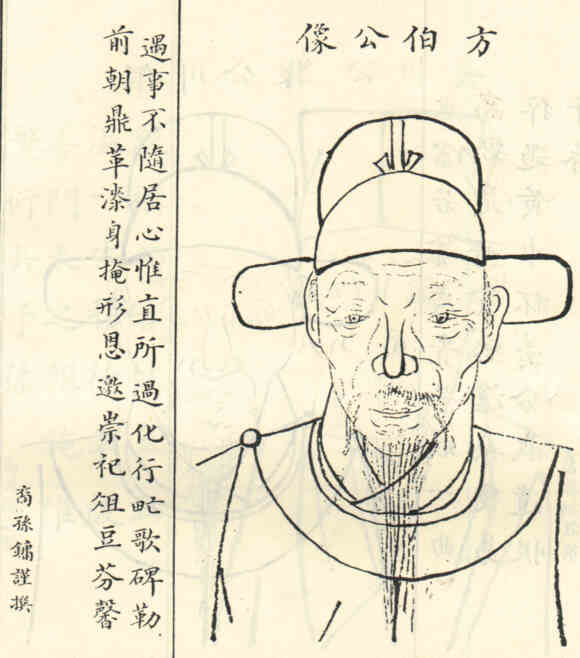 方伯公像
遇事不隨居心惟直所過化行甿歌碑勒
前朝鼎革漆身掩形恩邀崇祀俎豆芬馨
裔孫鏞謹撰